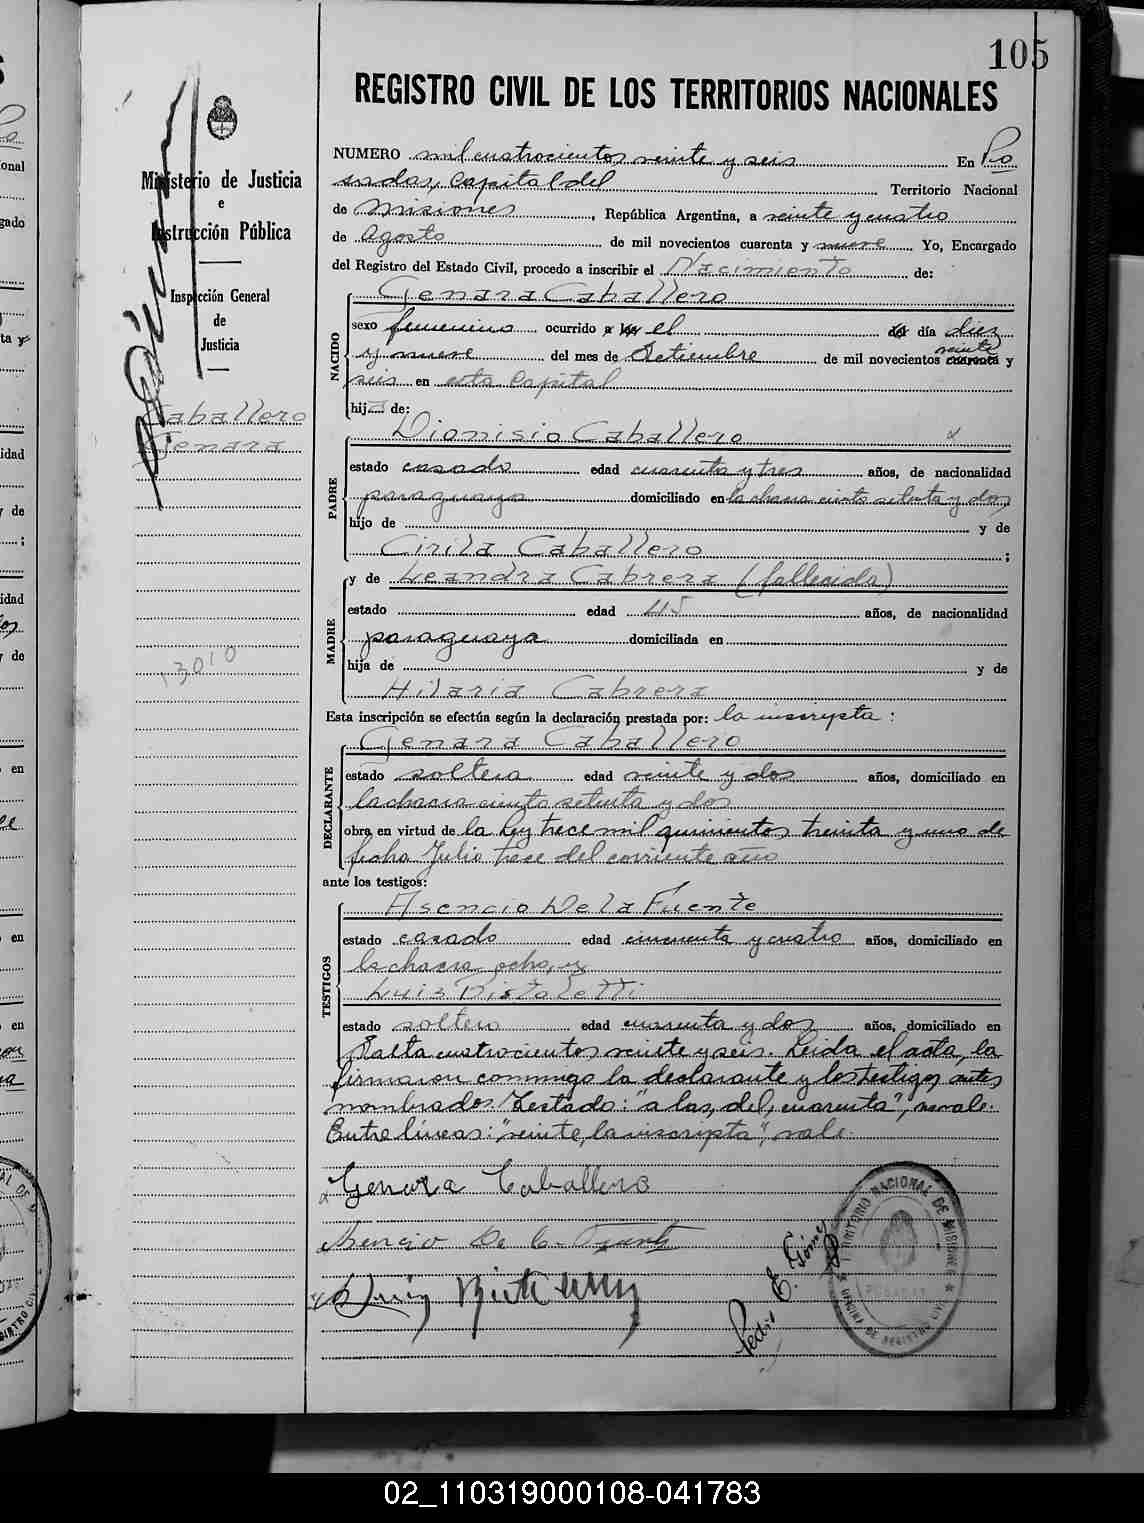 105
REGISTRO CIVIL DE LOS TERRITORIOS NACIONALES
Ministerio de Justicia
e
Instrucción Pública
Inspección General
de
Justicia
Caballero
Genara
13010
NUMERO mil cuatrocientos veinte y seis En Po
sadas, Capital del Territorio Nacional
de Misiones, República Argentina, a veinte y cuatro
de Agosto de mil novecientos cuarenta y nueve Yo, Encargado
del Registro del Estado Civil, procedo a inscribir el Nacimiento de:
NACIDO
Genara Caballero
sexo femenino ocurrido a las el del día diez
y nueve del mes de Setiembre de mil novecientos cuarenta veinte y
seis en esta Capital
hija de:
PADRE
Dionisio Caballero
estado casado edad cuarenta y tres años, de nacionalidad
paraguaya domiciliado en la chacra ciento setenta y dos,
hijo de y de
Cirila Caballero ;
MADRE
y de Leandra Cabrera (fallecida)
estado edad 45 años, de nacionalidad
paraguaya domiciliada en
hija de y de
Hilaria Cabrera
Esta inscripción se efectúa según la declaración prestada por: la inscripta :
DECLARANTE
Genara Caballero
estado soltera edad veinte y dos años, domiciliado en
la chacra ciento setenta y dos
obra en virtud de la Ley trece mil quinientos treinta y uno de
fecha Julio trece del corriente año
ante los testigos:
TESTIGOS
Asencio De la Fuente
estado casado edad cincuenta y cuatro años, domiciliado en
la chacra ocho, y
Luis Pistoletti
estado soltero edad cuarenta y dos años, domiciliado en
Salta cuatrocientos veinte y seis. Leida el acta, la
firmaron conmigo la declarante y los testigos antes
nombrados. Testado: "a las, del, cuarenta", no vale.
Entre líneas: "veinte, la inscripta", vale.
Genara Caballero
Asencio De la Fuente
Luis
Pedro E. Gómez
TERRITORIO NACIONAL DE MISIONES
POSADAS
OFICINA DE REGISTRO CIVIL
02_110319000108-041783